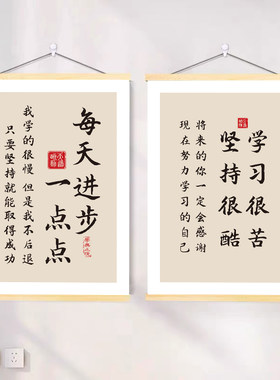 每天进步
一点点
我学的很慢 但是我不后退
只要坚持就能取得成功
学习很苦
坚持很酷
将来的你一定会感谢
现在努力学习的自己